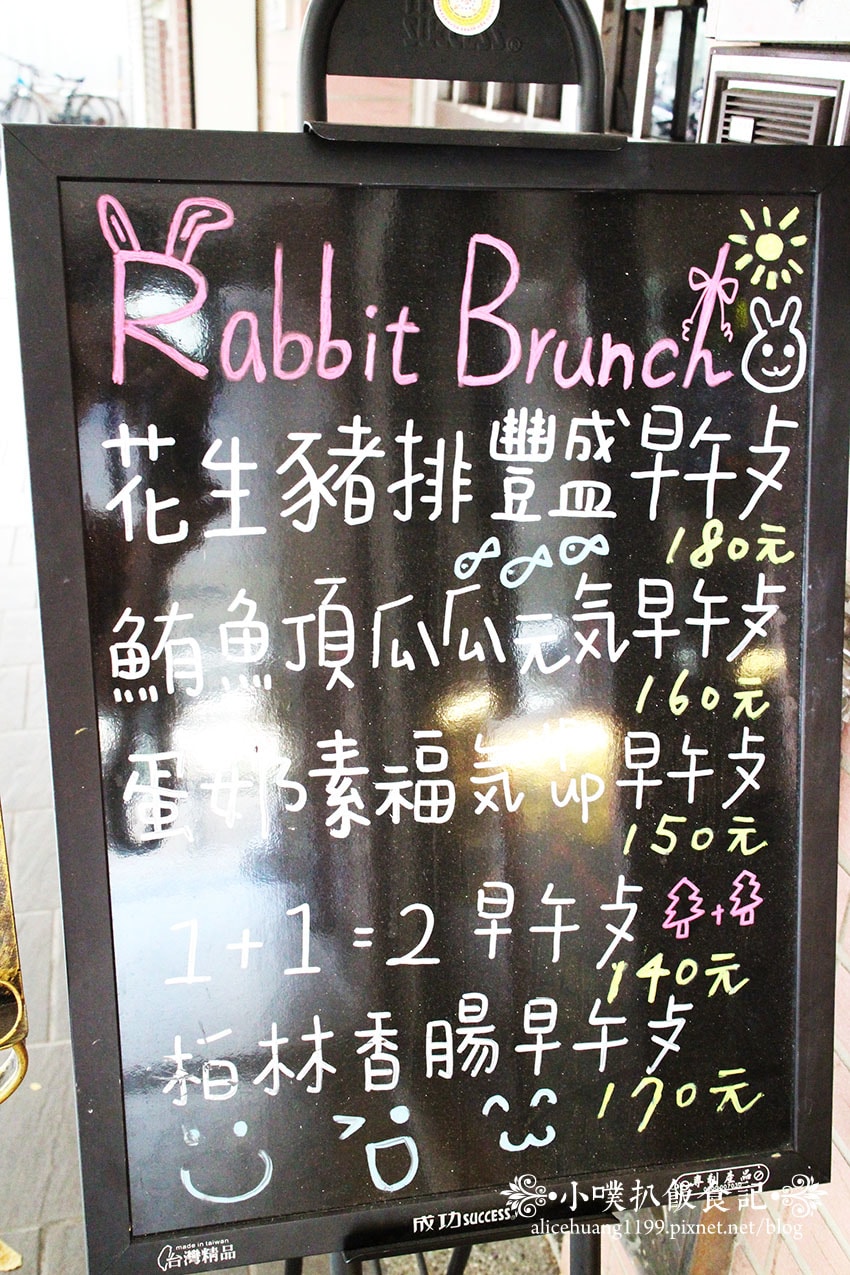 SUCCESS®
Rabbit Brunch
花生豬排豐盛早午歺
180元
鮪魚頂瓜瓜元気早午歺
160元
蛋奶素福気up早午歺
150元
1+1=2早午歺
140元
柏林香腸早午歺
170元
專利產品
小噗扒飯食記
alicehuang1199.pixnet.net/blog
成功SUCCESS
made in taiwan
台灣精品